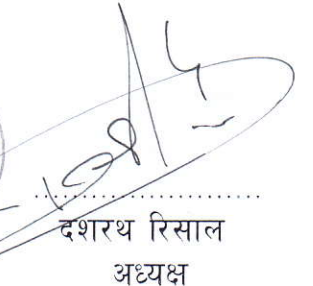 दशरथ रिसाल
अध्यक्ष